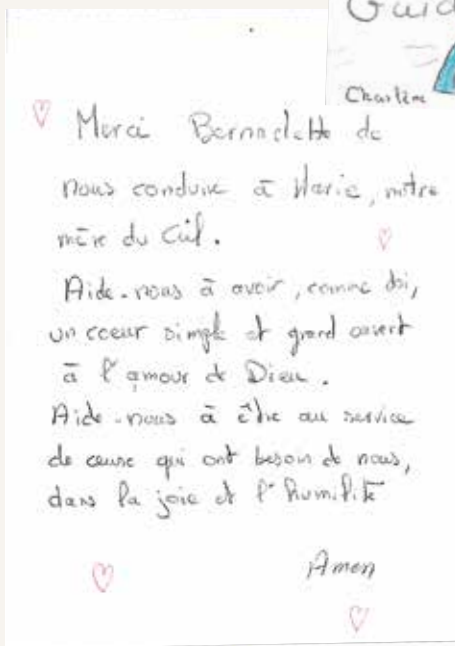 Guid
Charlène
Merci Bernadette de
nous conduire à Marie, notre
mère du Ciel.
Aide-nous à avoir, comme toi,
un coeur simple et grand ouvert
à l'amour de Dieu.
Aide-nous à être au service
de ceux qui ont besoin de nous,
dans la joie et l'humilité
Amen